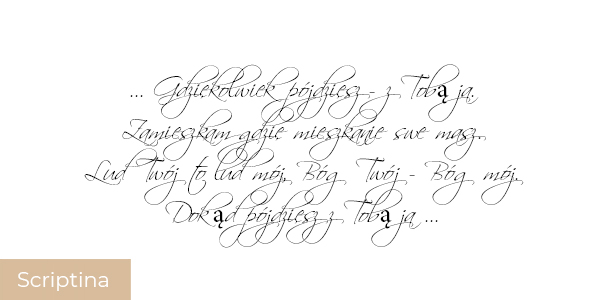 ... Gdziekolwiek pójdziesz - z Tobą ja,
Zamieszkam gdzie mieszkanie swe masz.
Lud Twój to lud mój, Bóg Twój - Bóg mój.
Dokąd pójdziesz z Tobą ja ...
Scriptina